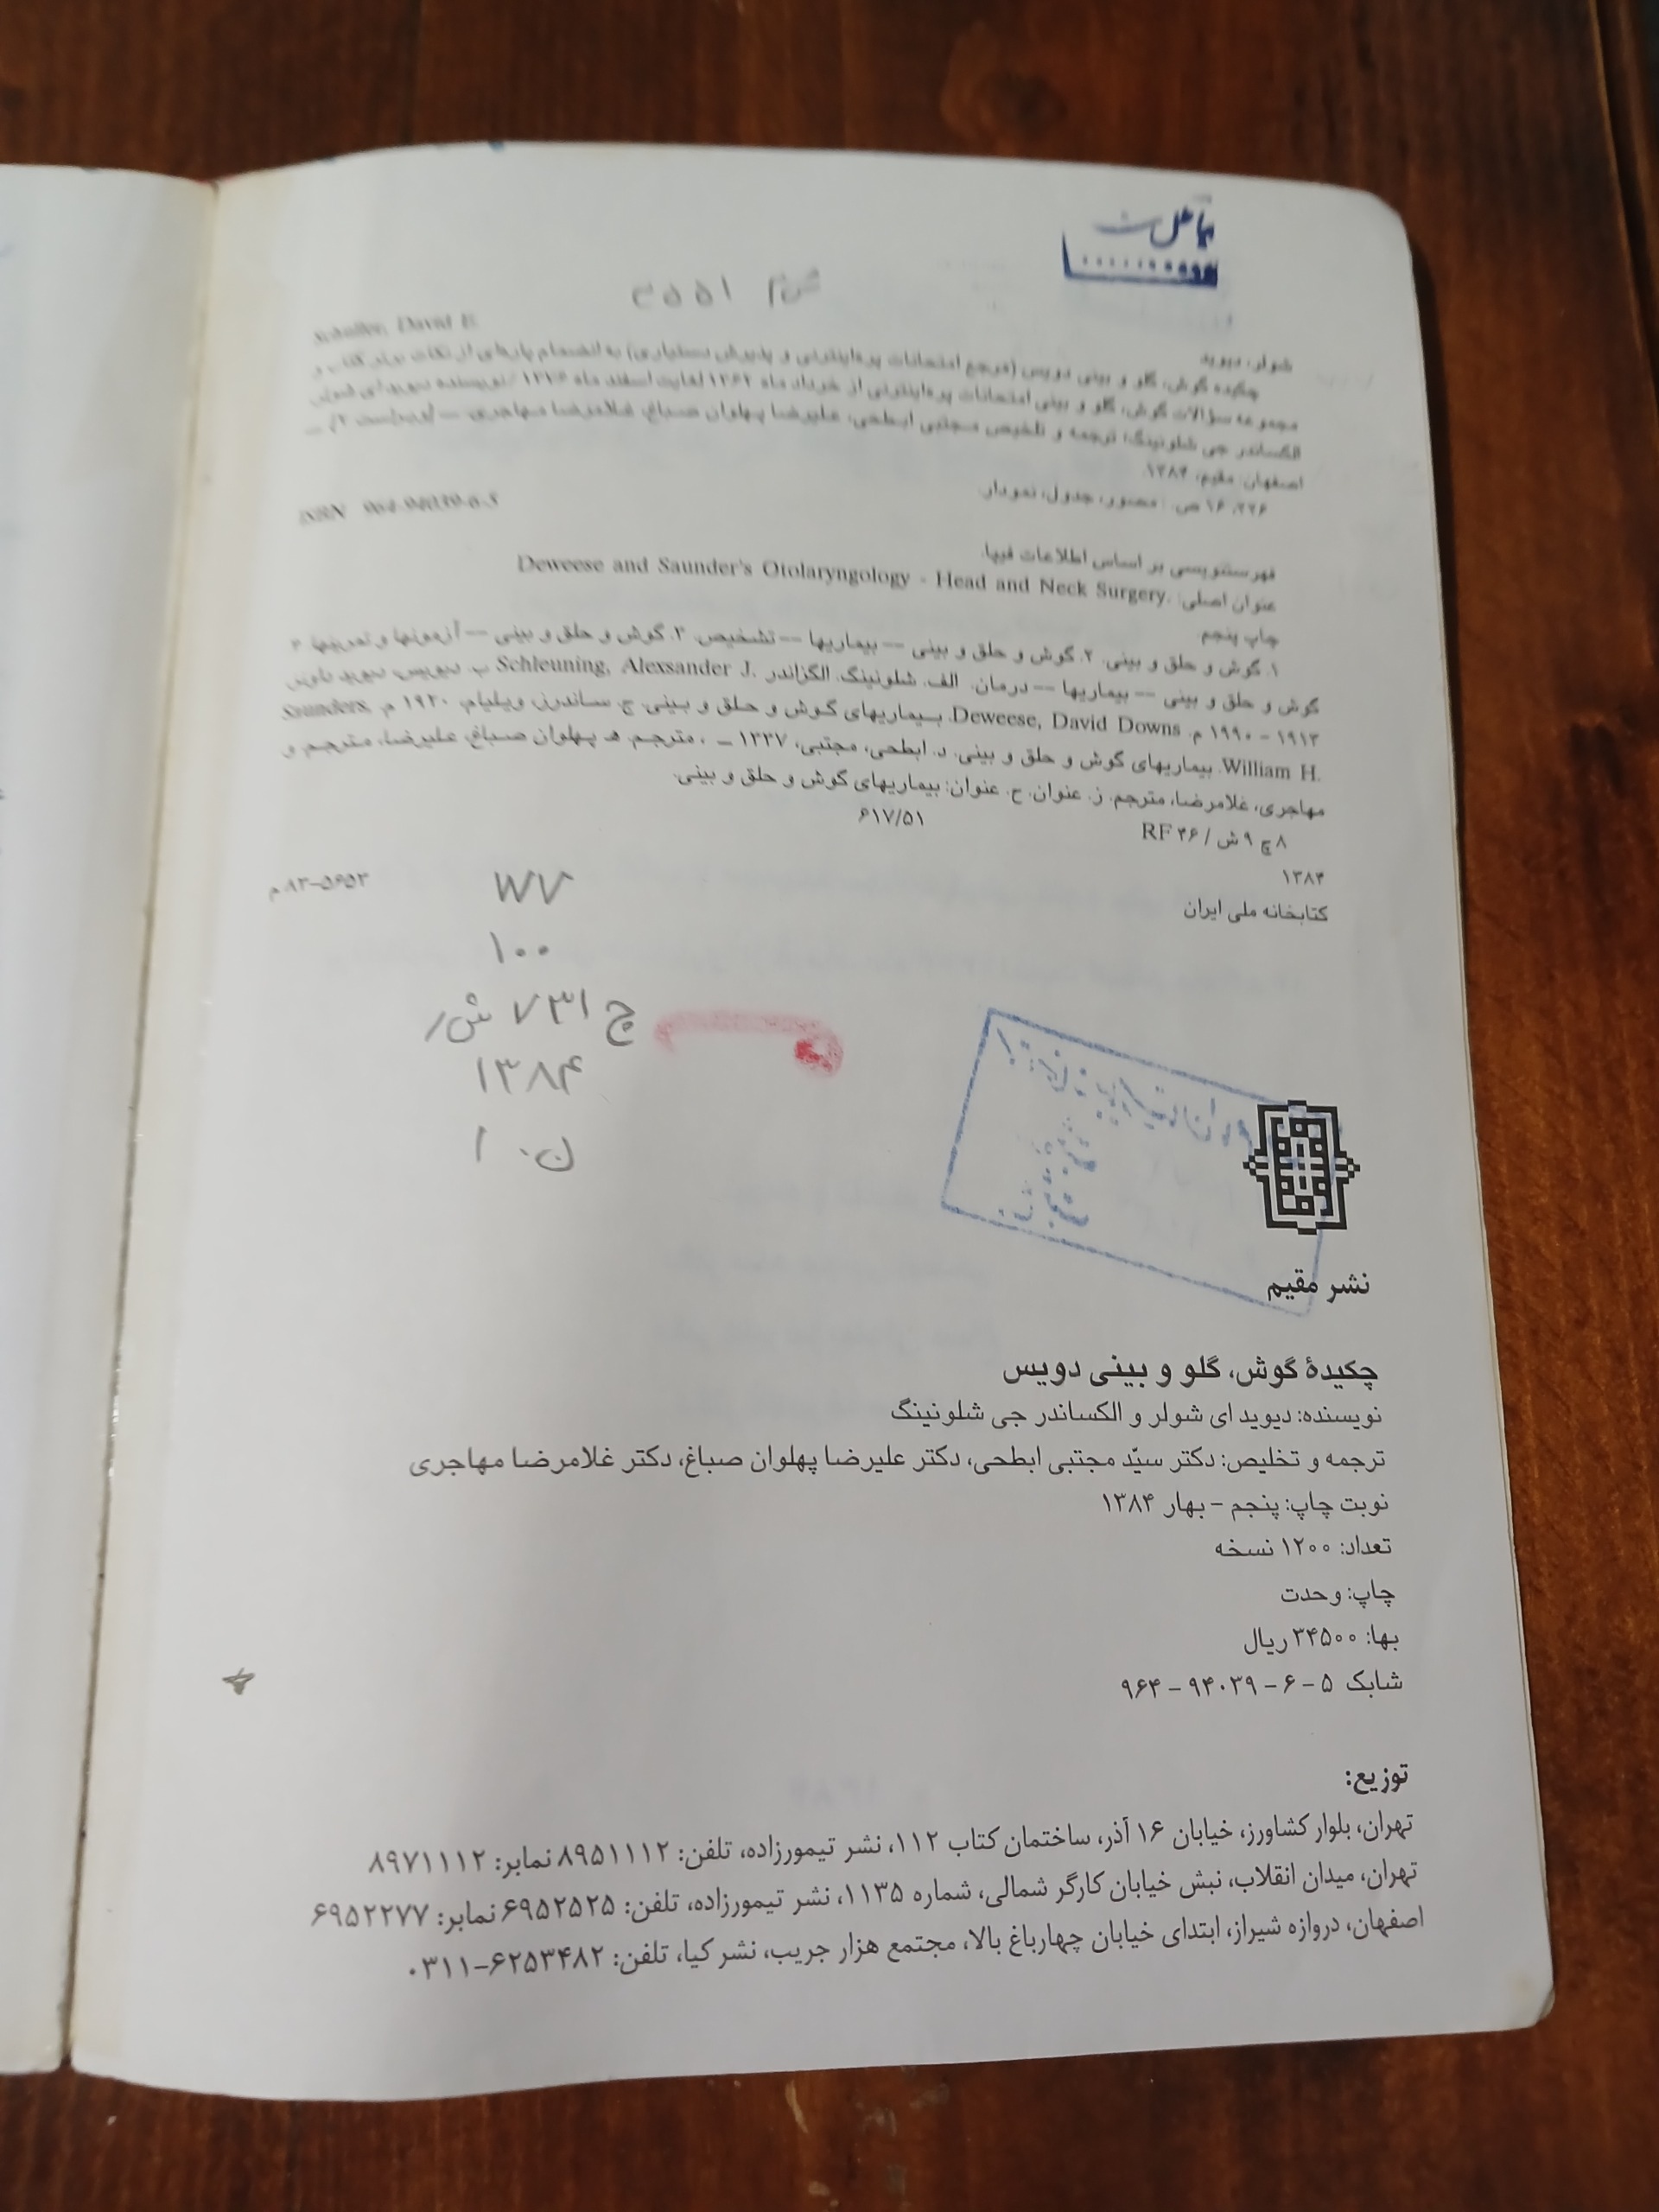 Schuller, David E.
شولر، دیوید
چکیده گوش، گلو و بینی دویس (مرجع امتحانات پره‌اینترنی و پذیرش دستیاری) به انضمام پاره‌ای از نکات
مجموعه سؤالات گوش، گلو و بینی امتحانات پره‌اینترنی از خرداد ماه ۱۳۶۲ لغایت اسفند ماه ۱۳۷۶ / نویسنده دیوید ای شولر
الکساندر جی شلونینگ؛ ترجمه و تلخیص مجتبی ابطحی، علیرضا پهلوان صباغ، غلامرضا مهاجری. — [ویراست ۲]. —
اصفهان: مقیم، ۱۳۸۴.
۱۶، ۲۲۶ ص. : مصور، جدول، نمودار.
ISBN 964-94039-6-5
فهرستنویسی بر اساس اطلاعات فیپا.
عنوان اصلی: Deweese and Saunder's Otolaryngology - Head and Neck Surgery.
چاپ پنجم
۱. گوش و حلق و بینی. ۲. گوش و حلق و بینی –– بیماریها –– تشخیص. ۳. گوش و حلق و بینی –– آزمونها و تمرینها. ۴
گوش و حلق و بینی –– بیماریها –– درمان. الف. شلونینگ، الگزاندر Schleuning, Alexsander J. ب. دیویس، دیوید داونز
۱۹۱۳ – ۱۹۹۰ م. Deweese, David Downs. بیماریهای گوش و حلق و بینی. ج. ساندرز، ویلیام، ۱۹۲۰ م. Saunders,
William H. بیماریهای گوش و حلق و بینی. د. ابطحی، مجتبی، ۱۳۳۷ ــ ، مترجم. ه. پهلوان صباغ، علیرضا، مترجم. و
مهاجری، غلامرضا، مترجم. ز. عنوان. ح. عنوان: بیماریهای گوش و حلق و بینی.
۸ چ ۹ ش / ۴۶ RF
۶۱۷/۵۱
۱۳۸۴
کتابخانه ملی ایران
۸۳–۵۶۵۳ م
WV
۱۰۰
چ ۷۳۱ ش/
۱۳۸۴
ن. ۱
نشر مقیم
چکیدهٔ گوش، گلو و بینی دویس
نویسنده: دیوید ای شولر و الکساندر جی شلونینگ
ترجمه و تخلیص: دکتر سیّد مجتبی ابطحی، دکتر علیرضا پهلوان صباغ، دکتر غلامرضا مهاجری
نوبت چاپ: پنجم – بهار ۱۳۸۴
تعداد: ۱۲۰۰ نسخه
چاپ: وحدت
بها: ۳۴۵۰۰ ریال
شابک ۵ – ۶ – ۹۴۰۳۹ – ۹۶۴
توزیع:
تهران، بلوار کشاورز، خیابان ۱۶ آذر، ساختمان کتاب ۱۱۲، نشر تیمورزاده، تلفن: ۸۹۵۱۱۱۲ نمابر: ۸۹۷۱۱۱۲
تهران، میدان انقلاب، نبش خیابان کارگر شمالی، شماره ۱۱۳۵، نشر تیمورزاده، تلفن: ۶۹۵۲۵۲۵ نمابر: ۶۹۵۲۲۷۷
اصفهان، دروازه شیراز، ابتدای خیابان چهارباغ بالا، مجتمع هزار جریب، نشر کیا، تلفن: ۶۲۵۳۴۸۲–۰۳۱۱